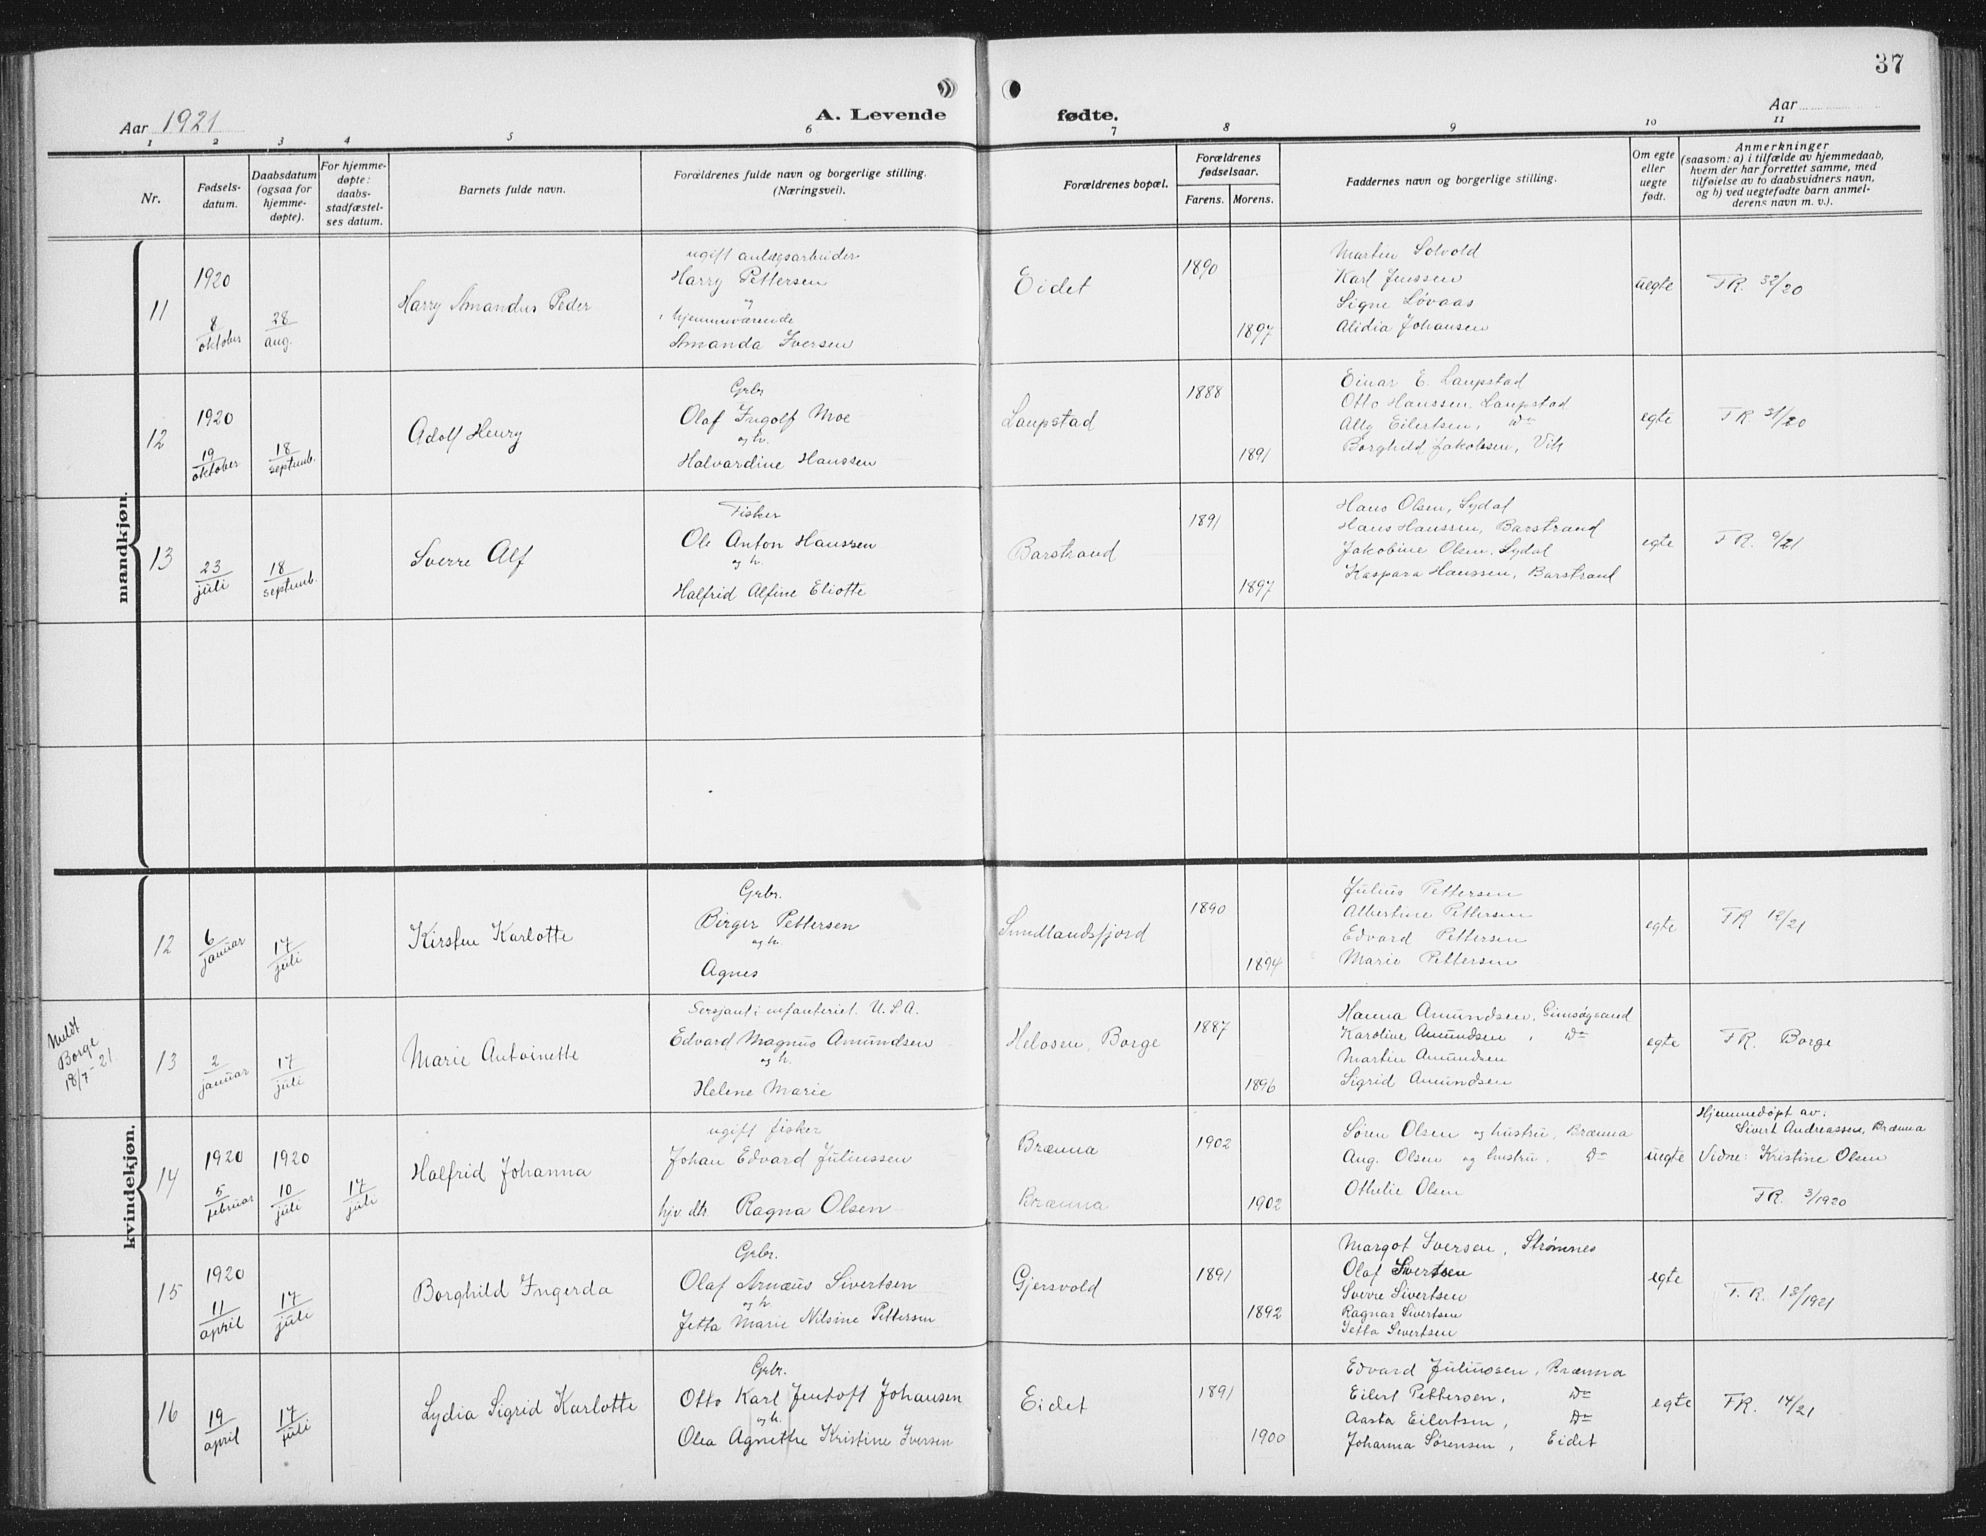 37
Aar 1921
A. Levende fødte.
Aar
1 2 3 4 5 6 7 8 9 10 11
Nr.
Fødsels-
datum.
Daabsdatum
(ogsaa for
hjemme-
døpte).
For hjemme-
døpte:
daabs-
stadfæstel-
ses datum.
Barnets fulde navn.
Forældrenes fulde navn og borgerlige stilling.
(Næringsvei).
Forældrenes bopæl.
Forældrenes
fødselsaar.
Farens. Morens.
Faddernes navn og borgerlige stilling.
Om egte
eller
uegte
født.
Anmerkninger
(saasom: a) i tilfælde av hjemmedaab,
hvem der har forrettet samme, med
tilføielse av to daabsvidners navn,
og b) ved uegtefødte barn anmel-
derens navn m. v.).
mandkjøn.
11
1920
8
oktober
28
aug.
Harry Amandus Peder
ugift anlægsarbeider
Harry Pettersen
og
hjemmeværende
Amanda Iversen
Eidet
1890
1897
Martin Solvold
Karl Jenssen
Signe Løvaas
Alidia Johansen
uegte
FR. 32/20
12
1920
19
oktober
18
septemb.
Adolf Henry
Grbr
Olaf Ingolf Moe
og h.
Halvardine Hanssen
Laupstad
1888
1891
Einar E. Laupstad
Otto Hanssen, Laupstad
Ally Eilertsen, Do
Borghild Jakobsen, Vik
egte
FR. 31/20
13
23
juli
18
septemb.
Sverre Alf
Fisker
Ole Anton Hanssen
og h.
Halfrid Alfine Eliotte
Barstrand
1891
1897
Hans Olsen, Sydal
Hans Hanssen, Barstrand
Jakobine Olsen, Sydal
Kaspara Hanssen, Barstrand
egte
F. R. /21
kvindekjøn.
12
6
januar
17
juli
Kirsten Karlotte
Grbr.
Birger Pettersen
og h.
Agnes
Sundlandsfjord
1890
1894
Julius Pettersen
Albertine Pettersen
Edvard Pettersen
Marie Pettersen
egte
FR 12/21
Meldt
Borge
18/7-21
13
2
januar
17
juli
Marie Antoinette
Sersjant i infanteriet. U.S.A.
Edvard Magnus Amundsen
og h.
Helene Marie
Helosen, Borge
1887
1896
Hanna Amundsen, Gimsøysand
Karoline Amundsen, Do
Martin Amundsen
Sigrid Amundsen
egte
FR. Borge
14
1920
5
februar
1920
10
juli
17
juli
Halfrid Johanna
ugift fisker
Johan Edvard Juliussen
hjv. dtr. Ragna Olsen
Brænna
Brænna
1902
1902
Søren Olsen og hustru, Brænna
Aug. Olsen og hustru. Do
Othelie Olsen
uegte
Hjemmedøpt av:
Sivert Andreassen, Brænna
Vidne: Kristine Olsen
FR. 3/1920
15
1920
11
april
17
juli
Borghild Ingerda
Grbr.
Olaf Arnæus Sivertsen
og h.
Jetta Marie Nilsine Pettersen
Gjersvold
1891
1892
Margot Iversen, Strømnes
Olaf Sivertsen
Sverre Sivertsen
Ragnar Sivertsen
Jetta Sivertsen
egte
F. R. 13/1921
16
19
april
17
juli
Lydia Sigrid Karlotte
Grbr.
Otto Karl Jentoft Johansen
og h.
Olea Agnethe Kristine Iversen
Eidet
1891
1900
Edvard Juliussen, Brænna
Eilert Pettersen, Do
Aasta Eilertsen, Do
Johanna Sørensen, Eidet
egte
FR. 14/21